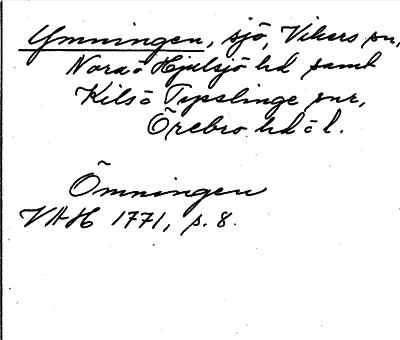 Ymningen, sjö, Vikers sn,
Nora o Hjulsjö hd samt
Kils o Tysslinge snr,
Örebro hd o l.
Ömningen
VAH 1771, s. 8.